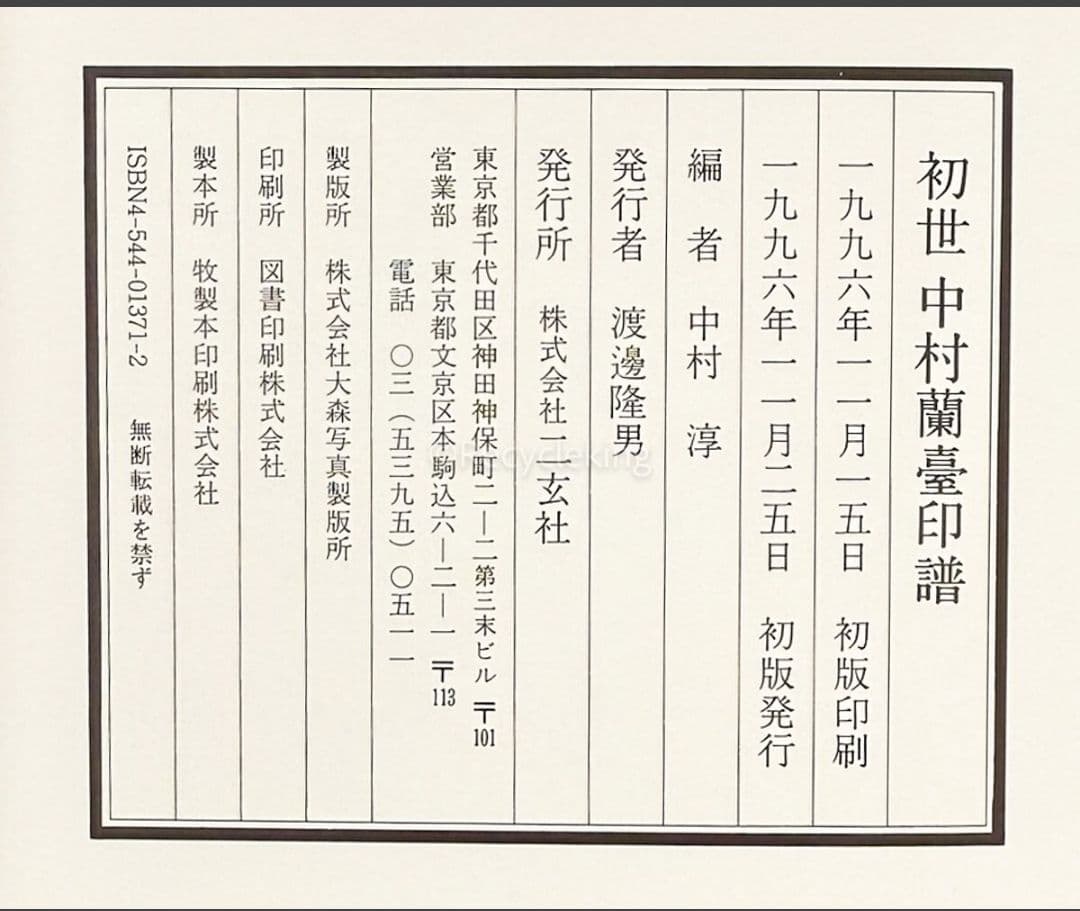 初世 中村蘭臺印譜
一九九六年一一月一五日 初版印刷
一九九六年一一月二五日 初版発行
編 者 中村 淳
発行者 渡邊隆男
発行所 株式会社二玄社
東京都千代田区神田神保町二―二第三末ビル 〒101
営業部 東京都文京区本駒込六―二―一 〒113
電話 〇三（五三九五）〇五一一
製版所 株式会社大森写真製版所
印刷所 図書印刷株式会社
製本所 牧製本印刷株式会社
ISBN4-544-01371-2 無断転載を禁ず
©Recycleking